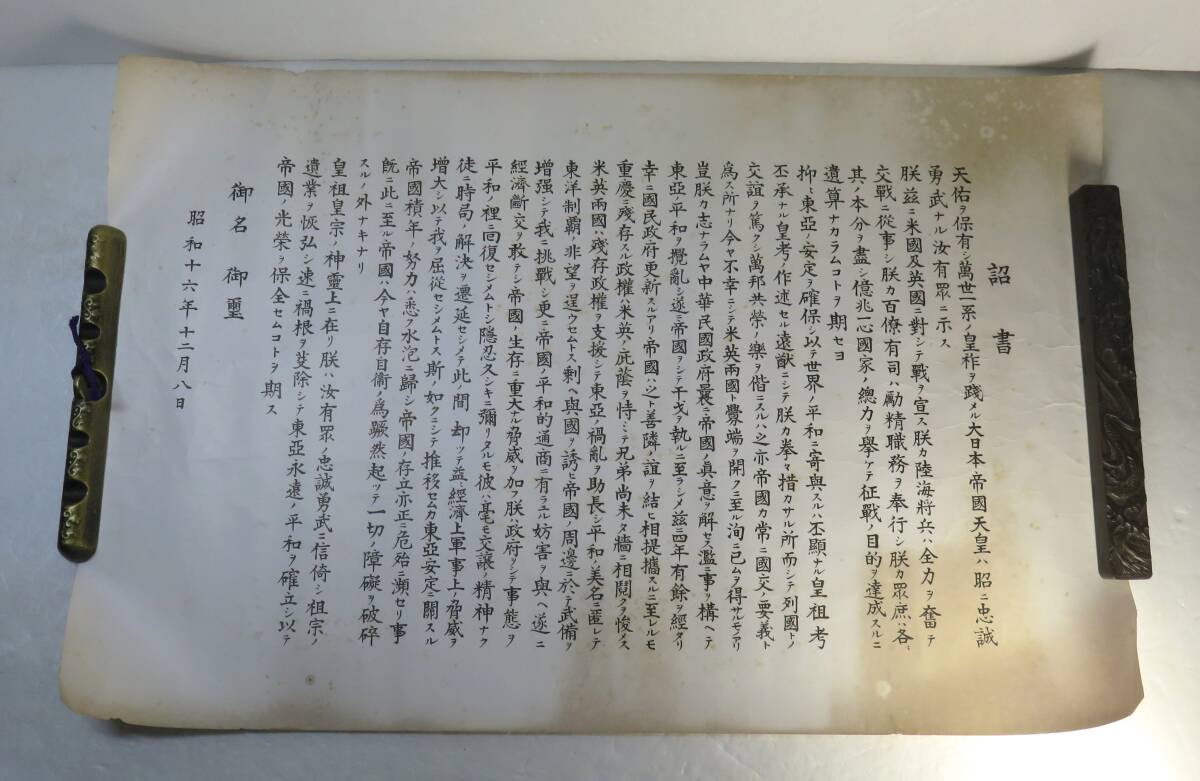 詔書
天佑ヲ保有シ萬世一系ノ皇祚ヲ踐メル大日本帝國天皇ハ昭ニ忠誠
勇武ナル汝有眾ニ示ス
朕玆ニ米國及英國ニ對シテ戰ヲ宣ス朕カ陸海將兵ハ全力ヲ奮テ
交戰ニ從事シ朕カ百僚有司ハ勵精職務ヲ奉行シ朕カ眾庶ハ各〻
其ノ本分ヲ盡シ億兆一心國家ノ總力ヲ擧ケテ征戰ノ目的ヲ達成スルニ
遺算ナカラムコトヲ期セヨ
抑〻東亞ノ安定ヲ確保シ以テ世界ノ平和ニ寄與スルハ丕顯ナル皇祖考
丕承ナル皇考ノ作述セル遠猷ニシテ朕カ拳々措カサル所而シテ列國トノ
交誼ヲ篤クシ萬邦共榮ノ樂ヲ偕ニスルハ之亦帝國カ常ニ國交ノ要義ト
爲ス所ナリ今ヤ不幸ニシテ米英兩國ト釁端ヲ開クニ至ル洵ニ已ムヲ得サルモノアリ
豈朕カ志ナラムヤ中華民國政府曩ニ帝國ノ眞意ヲ解セス濫ニ事ヲ構ヘテ
東亞ノ平和ヲ攪亂シ遂ニ帝國ヲシテ干戈ヲ執ルニ至ラシメ玆ニ四年有餘ヲ經タリ
幸ニ國民政府更新スルアリ帝國ハ之ト善隣ノ誼ヲ結ヒ相提攜スルニ至レルモ
重慶ニ殘存スル政權ハ米英ノ庇蔭ヲ恃ミテ兄弟尚未タ牆ニ相鬩クヲ悛メス
米英兩國ハ殘存政權ヲ支援シテ東亞ノ禍亂ヲ助長シ平和ノ美名ニ匿レテ
東洋制覇ノ非望ヲ逞ウセムトス剩ヘ與國ヲ誘ヒ帝國ノ周邊ニ於テ武備ヲ
增强シテ我ニ挑戰シ更ニ帝國ノ平和的通商ニ有ラユル妨害ヲ與ヘ遂ニ
經濟斷交ヲ敢テシ帝國ノ生存ニ重大ナル脅威ヲ加フ朕ハ政府ヲシテ事態ヲ
平和ノ裡ニ囘復セシメムトシ隱忍久シキニ彌リタルモ彼ハ毫モ交讓ノ精神ナク
徒ニ時局ノ解決ヲ遷延セシメテ此ノ間却ツテ益〻經濟上軍事上ノ脅威ヲ
增大シ以テ我ヲ屈從セシメムトス斯ノ如クニシテ推移セムカ東亞安定ニ關スル
帝國積年ノ努力ハ悉ク水泡ニ歸シ帝國ノ存立亦正ニ危殆ニ瀕セリ事
旣ニ此ニ至ル帝國ハ今ヤ自存自衞ノ爲蹶然起ツテ一切ノ障礙ヲ破碎
スルノ外ナキナリ
皇祖皇宗ノ神靈上ニ在リ朕ハ汝有眾ノ忠誠勇武ニ信倚シ祖宗ノ
遺業ヲ恢弘シ速ニ禍根ヲ芟除シテ東亞永遠ノ平和ヲ確立シ以テ
帝國ノ光榮ヲ保全セムコトヲ期ス
御名御璽
昭和十六年十二月八日